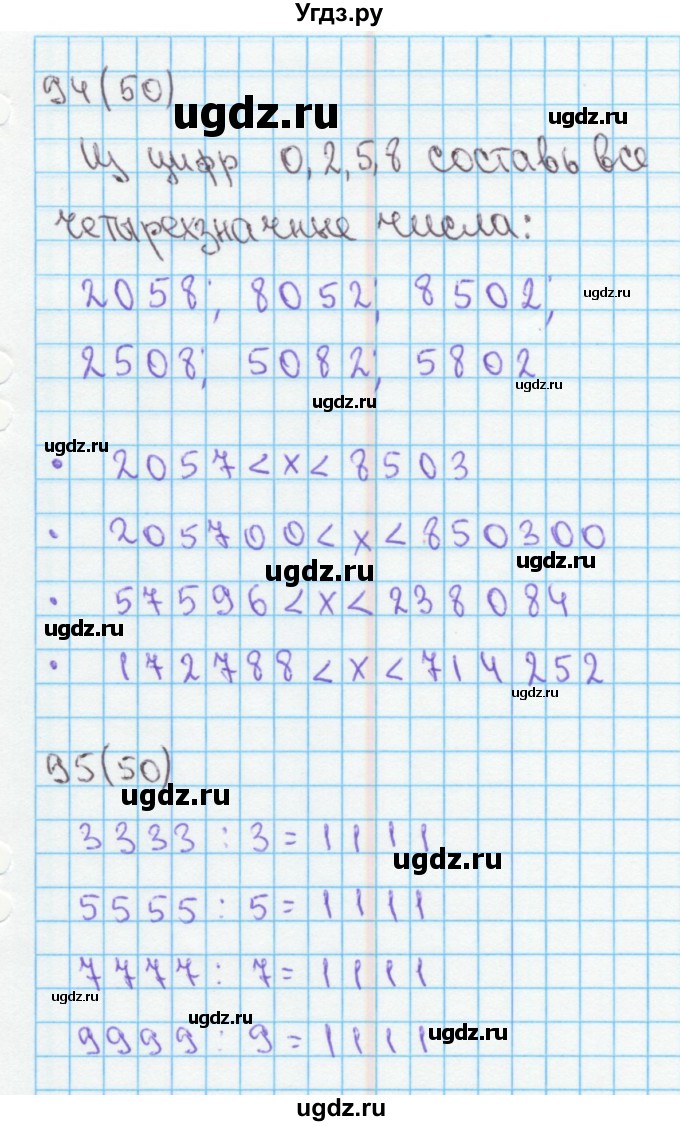 Угдз.ру
94(50)
ugdz.ru
ugdz.ru
Из цифр 0, 2, 5, 8 составь все
четырехзначные числа:
2058; 8052; 8502;
ugdz.ru
2508; 5082; 5802
ugdz.ru
ugdz.ru
ugdz.ru
• 2057 < x < 8503
• 205700 < x < 850300
ugdz.ru
ugdz.ru
• 57596 < x < 238084
ugdz.ru
• 172788 < x < 714252
ugdz.ru
95(50)
ugdz.ru
3333 : 3 = 1111
ugdz.ru
5555 : 5 = 1111
7777 : 7 = 1111
ugdz.ru
ugdz.ru
9999 : 9 = 1111
ugdz.ru
ugdz.ru